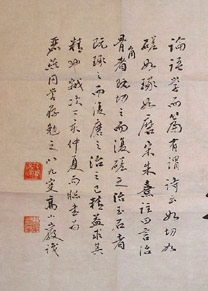 論語學而篇有謂詩云如切如
磋如琢如磨宋朱熹注曰言治
骨角者既切之而復磋之治玉石者
既琢之而復磨之治之已精益求其
精也歲次仲夏
同學存勉之八九叟高小巖識